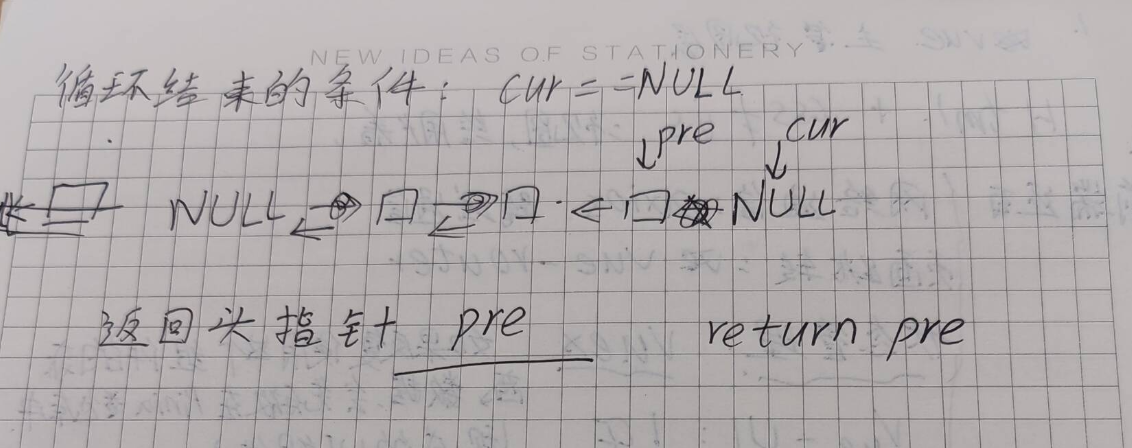 NEW IDEAS OF STATIONERY
循环结束的条件: cur==NULL
pre cur
NULL NULL
返回头指针 pre return pre